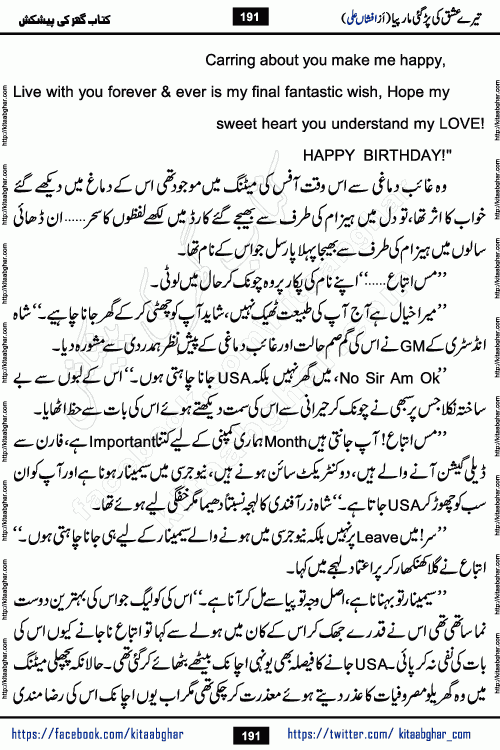 تیرے عشق کی پڑ گئی مار پیا (از افشاں علی)
191
کتاب گھر کی پیشکش
Carring about you make me happy,
Live with you forever & ever is my final fantastic wish, Hope my
sweet heart you understand my LOVE!
HAPPY BIRTHDAY!"
وہ غائب دماغی سے اس وقت آفس کی میٹنگ میں موجود تھی اس کے دماغ میں دیکھے گئے
خواب کا اثر تھا، تو دل میں ہیزام کی طرف سے بھیجے گئے کارڈ میں لکھے لفظوں کا سحر......ان ڈھائی
سالوں میں ہیزام کی طرف سے بھیجا پہلا پارسل جو اس کے نام تھا۔
’’مس اتباع......‘‘ اپنے نام کی پکار پر وہ چونک کر حال میں لوٹی۔
’’میرا خیال ہے آج آپ کی طبیعت ٹھیک نہیں، شاید آپ کو چھٹی کر کے گھر جانا چاہیے۔‘‘ شاہ
انڈسٹری کے GM نے اس کی گم صم حالت اور غائب دماغی کے پیش نظر ہمدردی سے مشورہ دیا۔
’’No Sir Am Ok، میں گھر نہیں بلکہ USA جانا چاہتی ہوں۔‘‘ اس کے لبوں سے بے
ساختہ نکلا جس پر سبھی نے چونک کر حیرانی سے اس کی سمت دیکھتے ہوئے اس کی بات سے حظ اٹھایا۔
’’مس اتباع! آپ جانتی ہیں Month ہماری کمپنی کے لیے کتنا Important ہے، فارن سے
ڈیلی گیشن آنے والے ہیں، دو کنٹریکٹ سائن ہونے ہیں، نیو جرسی میں سیمینار ہونا ہے اور آپ کو ان
سب کو چھوڑ کر USA جاتا ہے۔‘‘ شاہ زر آفندی کا لہجہ نسبتاً دھیما مگر خفگی لیے ہوئے تھا۔
’’سر! میں Leave پر نہیں بلکہ نیو جرسی میں ہونے والے سیمینار کے لیے ہی جانا چاہتی ہوں۔‘‘
اتباع نے گلا کھنکھار کر پر اعتماد لہجے میں کہا۔
’’سیمینار تو بہانا ہے، اصل وجہ تو پیا سے مل کر آنا ہے۔‘‘ اس کی کولیگ جو اس کی بہترین دوست
نما ساتھی تھی اس نے قدرے جھک کر اس کے کان میں ہولے سے کہا تو اتباع نا جانے کیوں اس کی
بات کی نفی نہ کر پائی۔ USA جانے کا فیصلہ بھی یونہی اچانک بیٹھے بٹھائے کر گئی تھی۔ حالانکہ پچھلی میٹنگ
میں وہ گھریلو مصروفیات کا عذر دیتے ہوئے معذرت کر چکی تھی مگر اب یوں اچانک اس کی رضا مندی
https://facebook.com/kitaabghar
191
https://twitter.com/ kitaabghar_com
http://kitaabghar.com